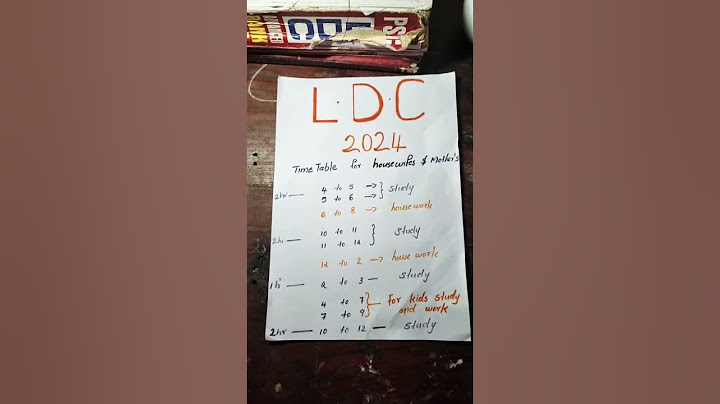 PSC
LDC
L.D.C
2024
Time Table for housewifes & Mother's
2hr — 4 to 5 → } study
5 to 6 →
6 to 8 → house work
2hr — 10 to 11 } study
11 to 12
12 to 2 → house work
1hr — 2 to 3 — study
4 to 7 } — for kids study
7 to 9 and work
2hr — 10 to 12 — study